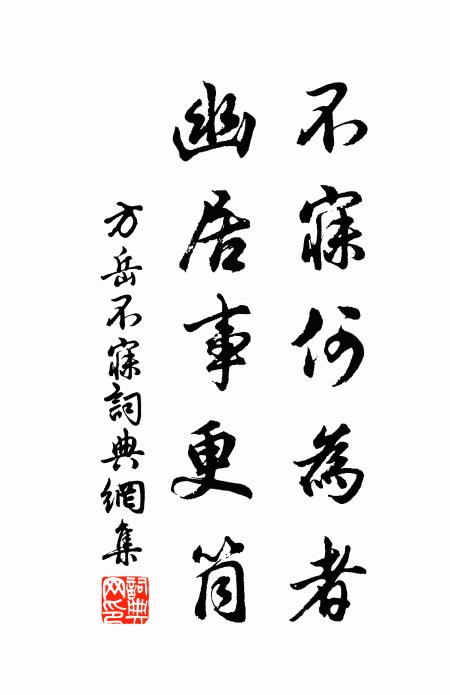 不寐何為者
幽居事更簡
方岳不寐詞典網集
詞典
网印